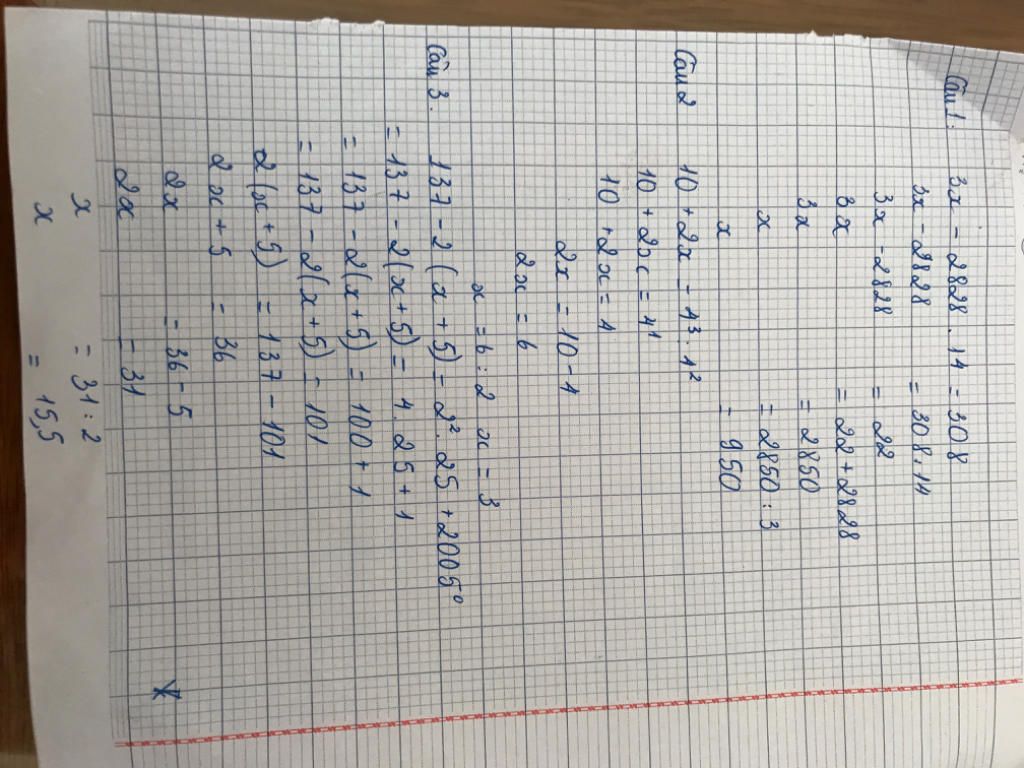 Câu 1: 3x - 2828 . 14 = 308
3x - 2828 = 308 : 14
3x - 2828 = 22
3x = 22 + 2828
3x = 2850
x = 2850 : 3
x = 950
Câu 2 10 + 2x = 4³ . 1²
10 + 2x = 4¹
10 + 2x = 4
2x = 10 - 4
2x = 6
x = 6 : 2 x = 3
Câu 3. 137 - 2(x + 5) = 2² . 25 + 2005⁰
= 137 - 2(x + 5) = 4 . 25 + 1
= 137 - 2(x + 5) = 100 + 1
= 137 - 2(x + 5) = 101
2(x + 5) = 137 - 101
2x + 5 = 36
2x = 36 - 5
2x = 31
x = 31 : 2
x = 15,5